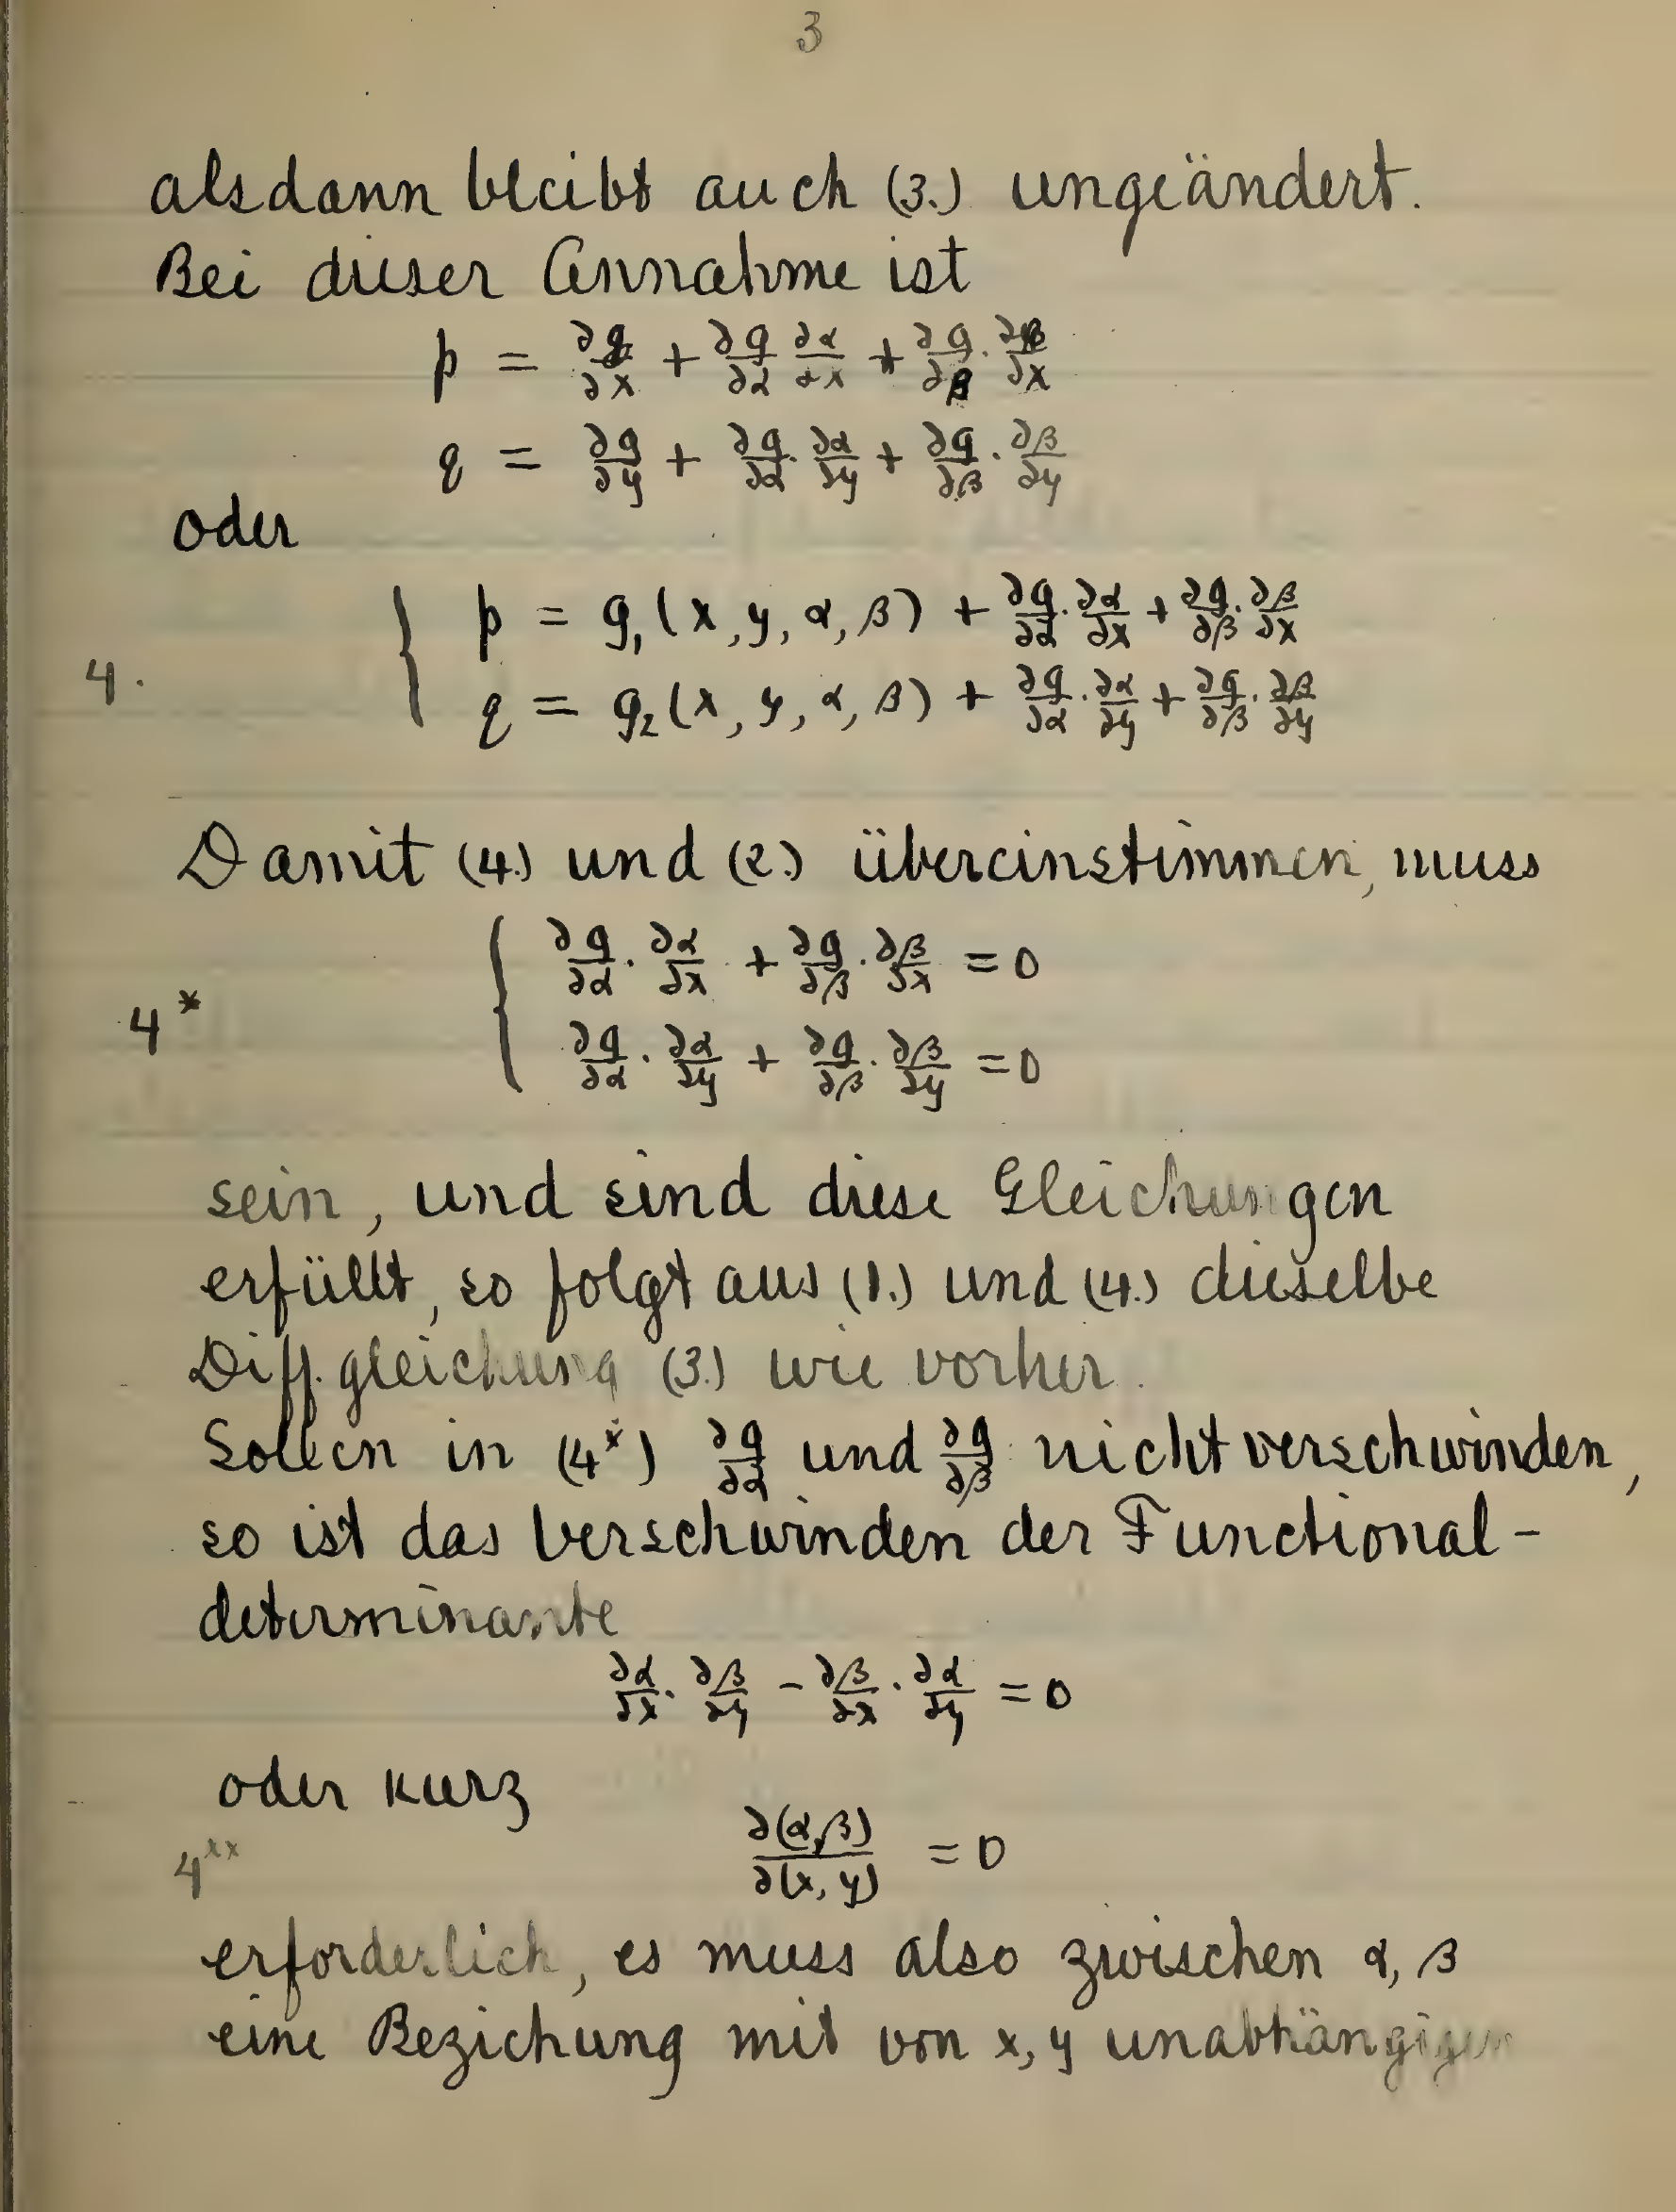 3
alsdann bleibt auch (3.) ungeändert.
Bei dieser Annahme ist
p = ∂g/∂x + ∂g/∂α ∂α/∂x + ∂g/∂β · ∂β/∂x
q = ∂g/∂y + ∂g/∂α · ∂α/∂y + ∂g/∂β · ∂β/∂y
oder
4. { p = g₁(x, y, α, β) + ∂g/∂α · ∂α/∂x + ∂g/∂β · ∂β/∂x
q = g₂(x, y, α, β) + ∂g/∂α · ∂α/∂y + ∂g/∂β · ∂β/∂y
Damit (4.) und (2.) übereinstimmen, muss
4* { ∂g/∂α · ∂α/∂x + ∂g/∂β · ∂β/∂x = 0
∂g/∂α · ∂α/∂y + ∂g/∂β · ∂β/∂y = 0
sein, und sind diese Gleichungen
erfüllt, so folgt aus (1.) und (4.) dieselbe
Diff. gleichung (3.) wie vorher.
Sollen in (4*) ∂g/∂α und ∂g/∂β nicht verschwinden,
so ist das Verschwinden der Functional-
determinante
∂α/∂x · ∂β/∂y - ∂β/∂x · ∂α/∂y = 0
oder kurz
4** ∂(α,β)/∂(x,y) = 0
erforderlich, es muss also zwischen α, β
eine Beziehung mit von x, y unabhängigen